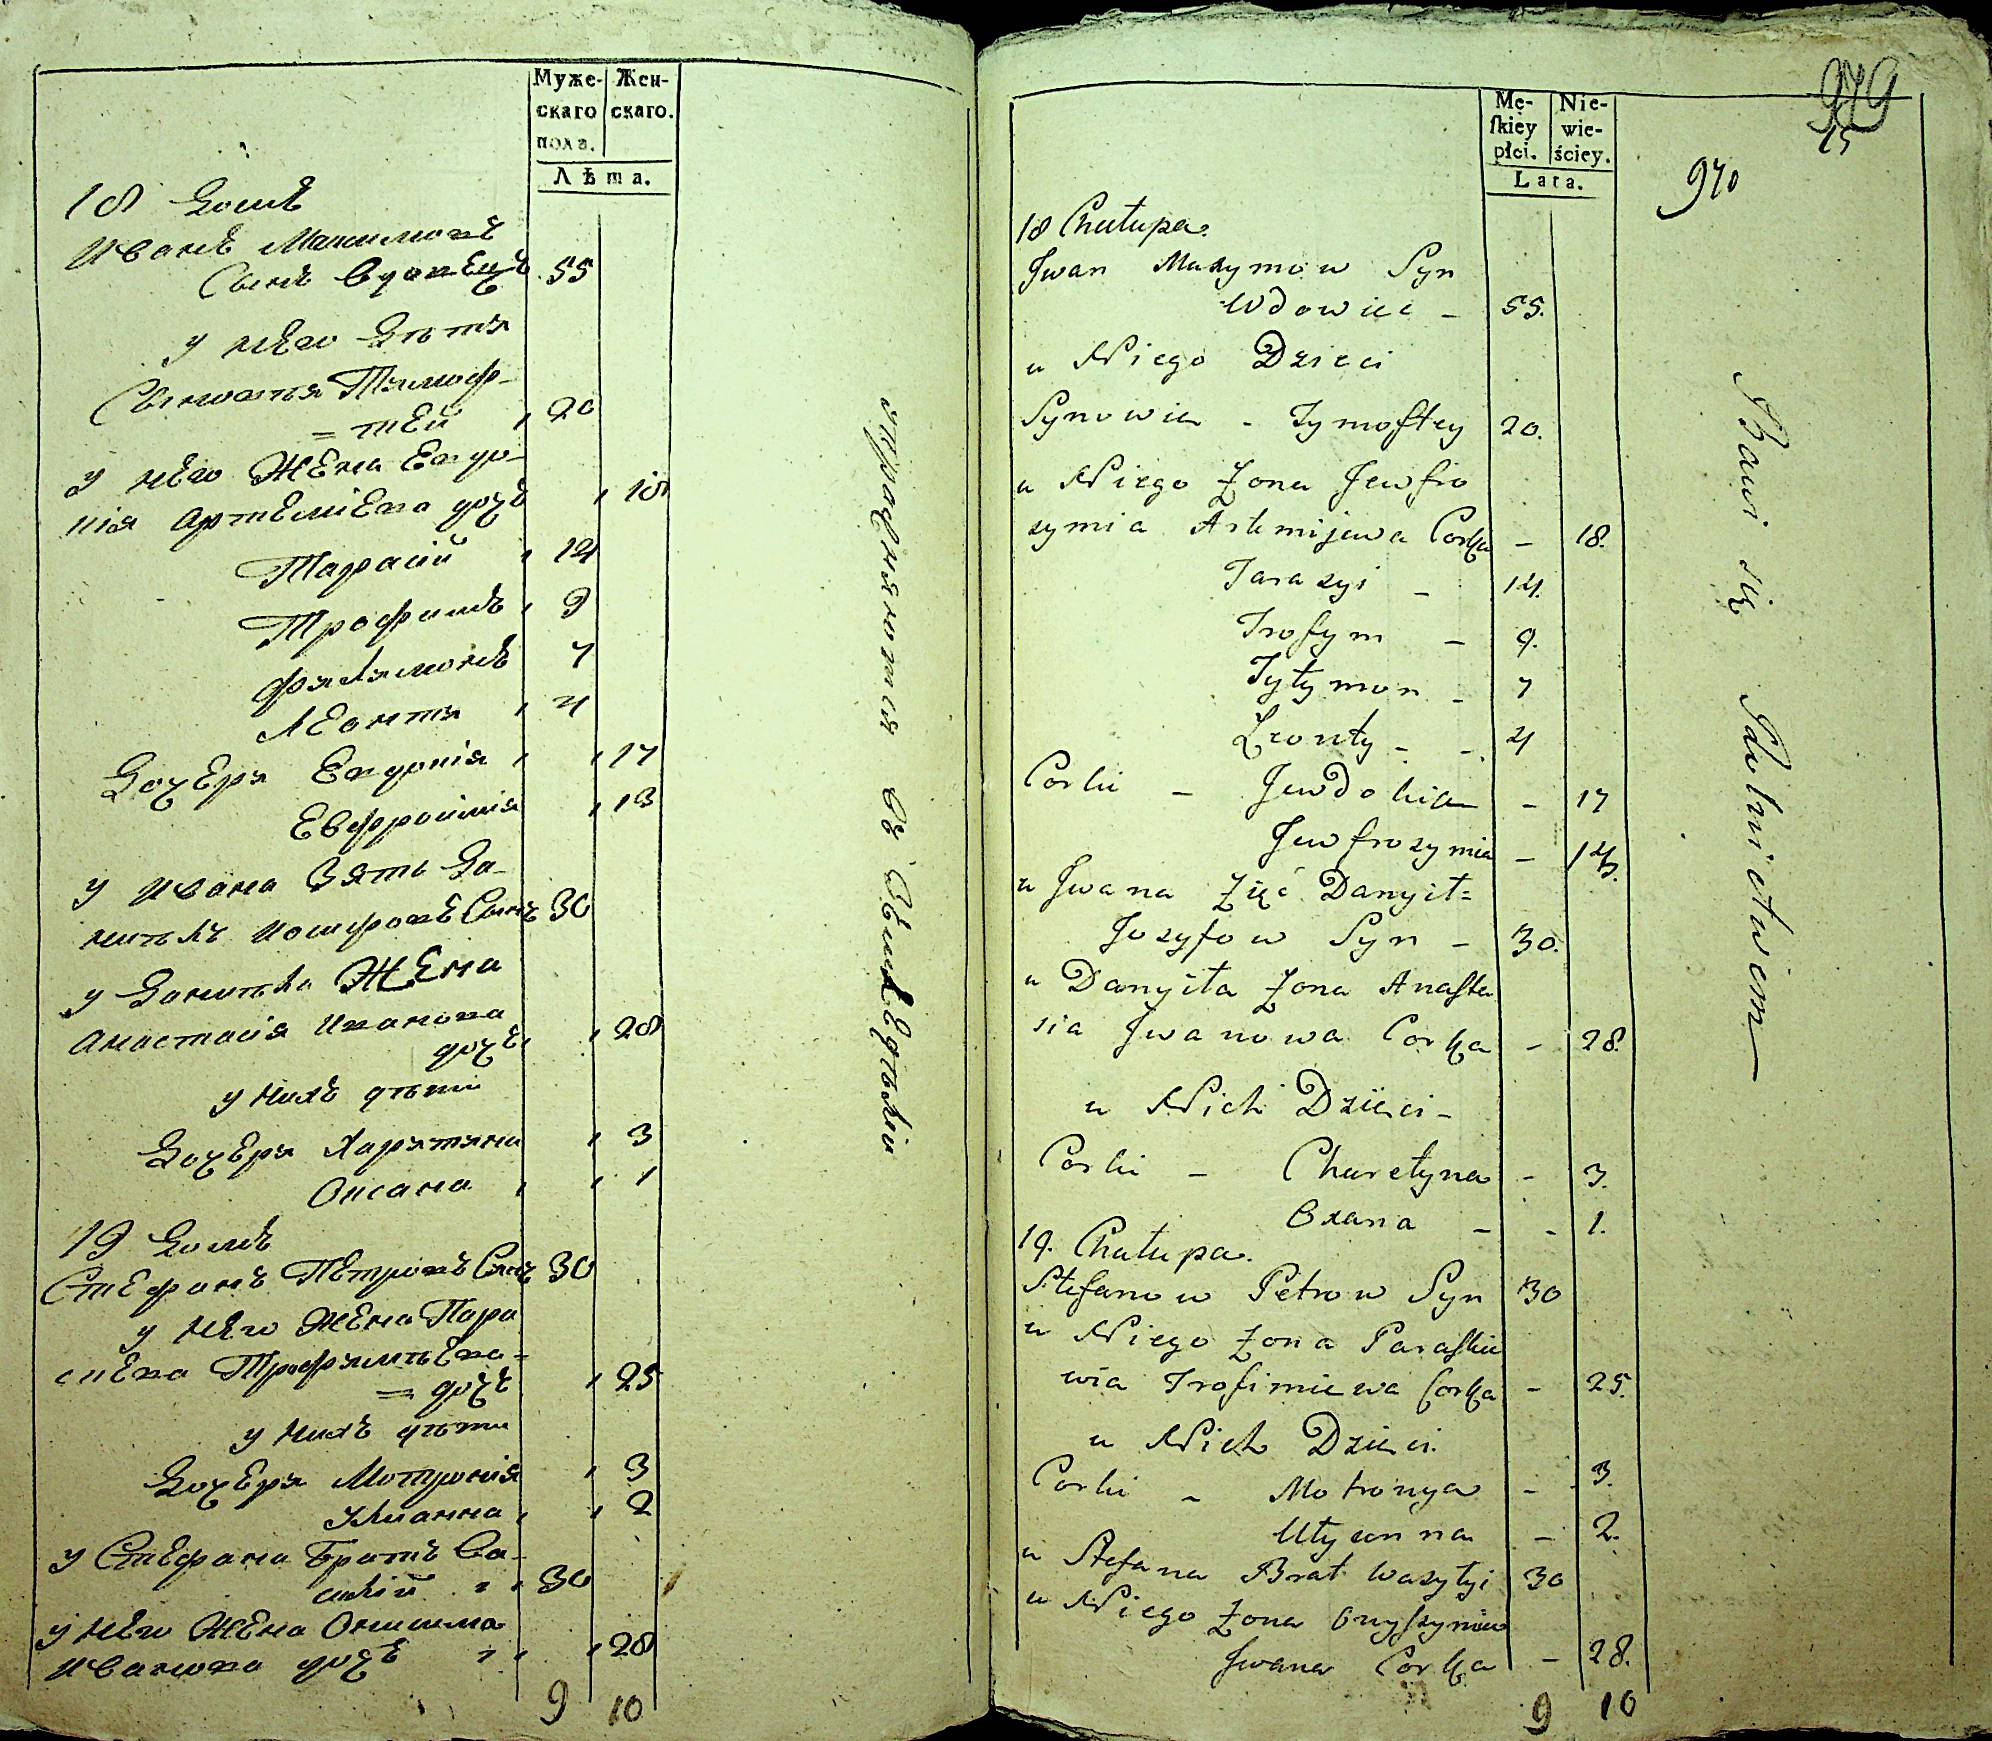 Муже-
скаго
пола.
Жен-
скаго.
Лѣта.
18 Домъ
Иванъ Максимовъ
Сынъ Вдовецъ 55
у него Дѣти
Сыновья Тимоф-
=тей 20
у него Жена Евдо-
кія Артемиева дочь 18
Тарасий 14
Трофимъ 9
Филимонъ 7
Леонти 4
Дочери Евдокия 17
Евфросиния 13
у Ивана Зять Да-
нилъ Иосифовъ Сынъ 30
у Данила Жена
Анастасія Иванова
дочь 28
у нихъ дѣти
Дочери Харитина 3
Оксана 1
19 Домъ
Стефанъ Петровъ Сынъ 30
у него Жена Пара
скева Трофимиева=
=дочь 25
у нихъ дѣти
Дочери Мотрония 3
Улианна 2
у Стефана Братъ Ва-
силий 30
у него Жена Онисима
Иванова дочь 28
9 10
упражняются въ Земледѣлии
Mę-
ſkiey
płci.
Nie-
wie-
ściey.
Lata.
979
15
970
18 Chałupa.
Jwan Maxymow Syn
Wdowiec – 55.
u Niego Dzieci
Synowie – Tymoftey 20.
u Niego Żona Jewfro
zymia Artemijewa Corka – 18.
Tarazyi – 14.
Trofym – 9.
Fyłymon – 7
Leonty – – 4
Corki – Jewdokia – 17
Jewfrozymia – 13.
u Jwana Zięć Danyił=
Jozyfow Syn – 30.
u Danyiła Żona Anaſta
zia Jwanowa Corka – 28.
u Nich Dzieci –
Corki – Charetyna – 3.
Oxana – – 1.
19. Chałupa.
Stefanow Petrow Syn 30
u Niego Żona Paraſkie
wia Trofimiewa Corka – 25.
u Nich Dzieci.
Corki – Motronya – 3.
Ułyanna – 2.
u Stefana Brat Wasyłyi 30
u Niego Żona Onyſzymia
Jwana Corka – 28.
9 10
Bawi się Rolnictwem